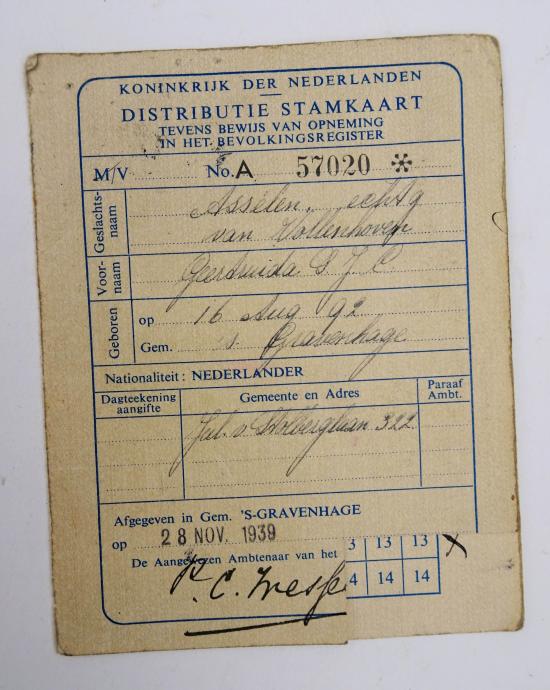 KONINKRIJK DER NEDERLANDEN
DISTRIBUTIE STAMKAART
TEVENS BEWIJS VAN OPNEMING
IN HET BEVOLKINGSREGISTER
M/V No. A 57020
Geslachts-
naam
Asselen, echtg
van Vollenhoven
Voor-
naam
Geertruida S. J. C.
Geboren
op 16 Aug 92
Gem. 's Gravenhage
Nationaliteit: NEDERLANDER
Dagteekening
aangifte
Gemeente en Adres
Paraaf
Ambt.
Jul. v. Stolberglaan 322.
Afgegeven in Gem. 'S-GRAVENHAGE
op 28 NOV. 1939
De Aangewezen Ambtenaar van het
3 13 13
4 14 14